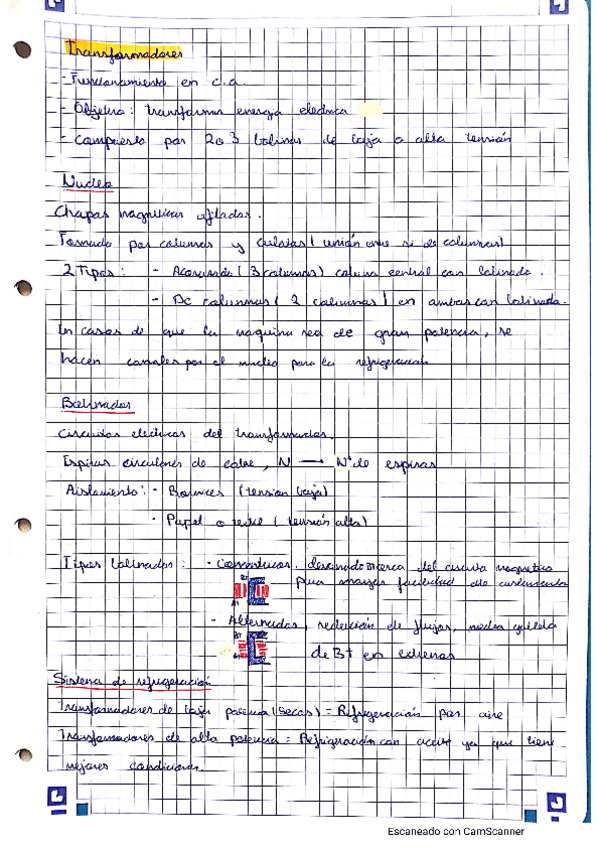 Transformadores
- Funcionamiento en c.a.
- Objetivo: transformar energia electrica
- Compuesto por 2 o 3 bobinas de baja o alta tensión
Nucleo
Chapas magneticas apiladas.
Formado por columnas y culatas (unión entre si de columnas)
2 Tipos: - Acorazada (3 columnas) columna central con bobinado.
- De columnas (2 columnas) en ambas con bobinado.
En casos de que la maquina sea de gran potencia, se
hacen canales por el nucleo para la refrigeracion
Bobinados
Circuitos electricos del transformador.
Espiras circulares de cobre, N → Nº de espiras
Aislamiento: - Barnices (tension baja)
- Papel o aceite (tensión alta)
Tipos bobinados: - Concentricos. cerca del circuito magnetico
para mayor facilidad de aislamiento
BT
AT
- Alternados, reducción de flujos, media galleta
de BT en extremos
BT
Sistema de refrigeración
Transformadores de baja potencia (Secos) = Refrigeración por aire
Transformadores de alta potencia = Refrigeración con aceite ya que tiene
mejores condiciones.
Escaneado con CamScanner